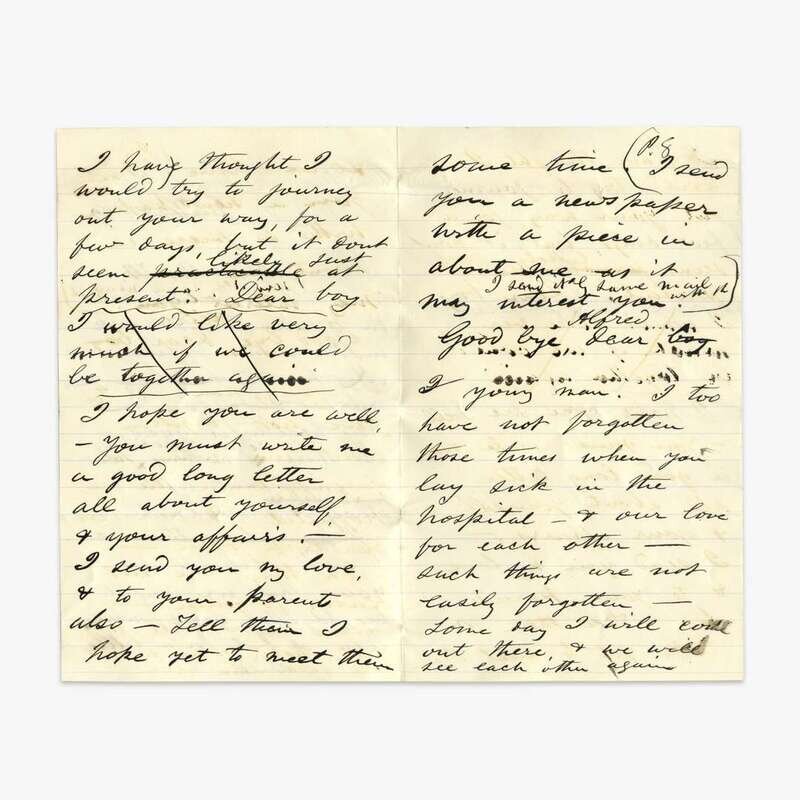 I have thought I
would try to journey
out your way, for a
few days, but it dont
likely just
seem practicable at
present. Dear boy
I would like very
much if we could
be together again
I hope you are well,
– You must write me
a good long letter
all about yourself,
& your affairs. —
I send you my love,
& to your parents
also — Tell them I
hope yet to meet them
some time. (P.S. I send
you a newspaper
with a piece in
about me as it
I send it by same mail with this
may interest you
Alfred
Good bye dear boy
I young man. I too
have not forgotten
those times when you
lay sick in the
hospital – & our love
for each other —
such things are not
easily forgotten —
Some day I will come
out there, & we will
see each other again